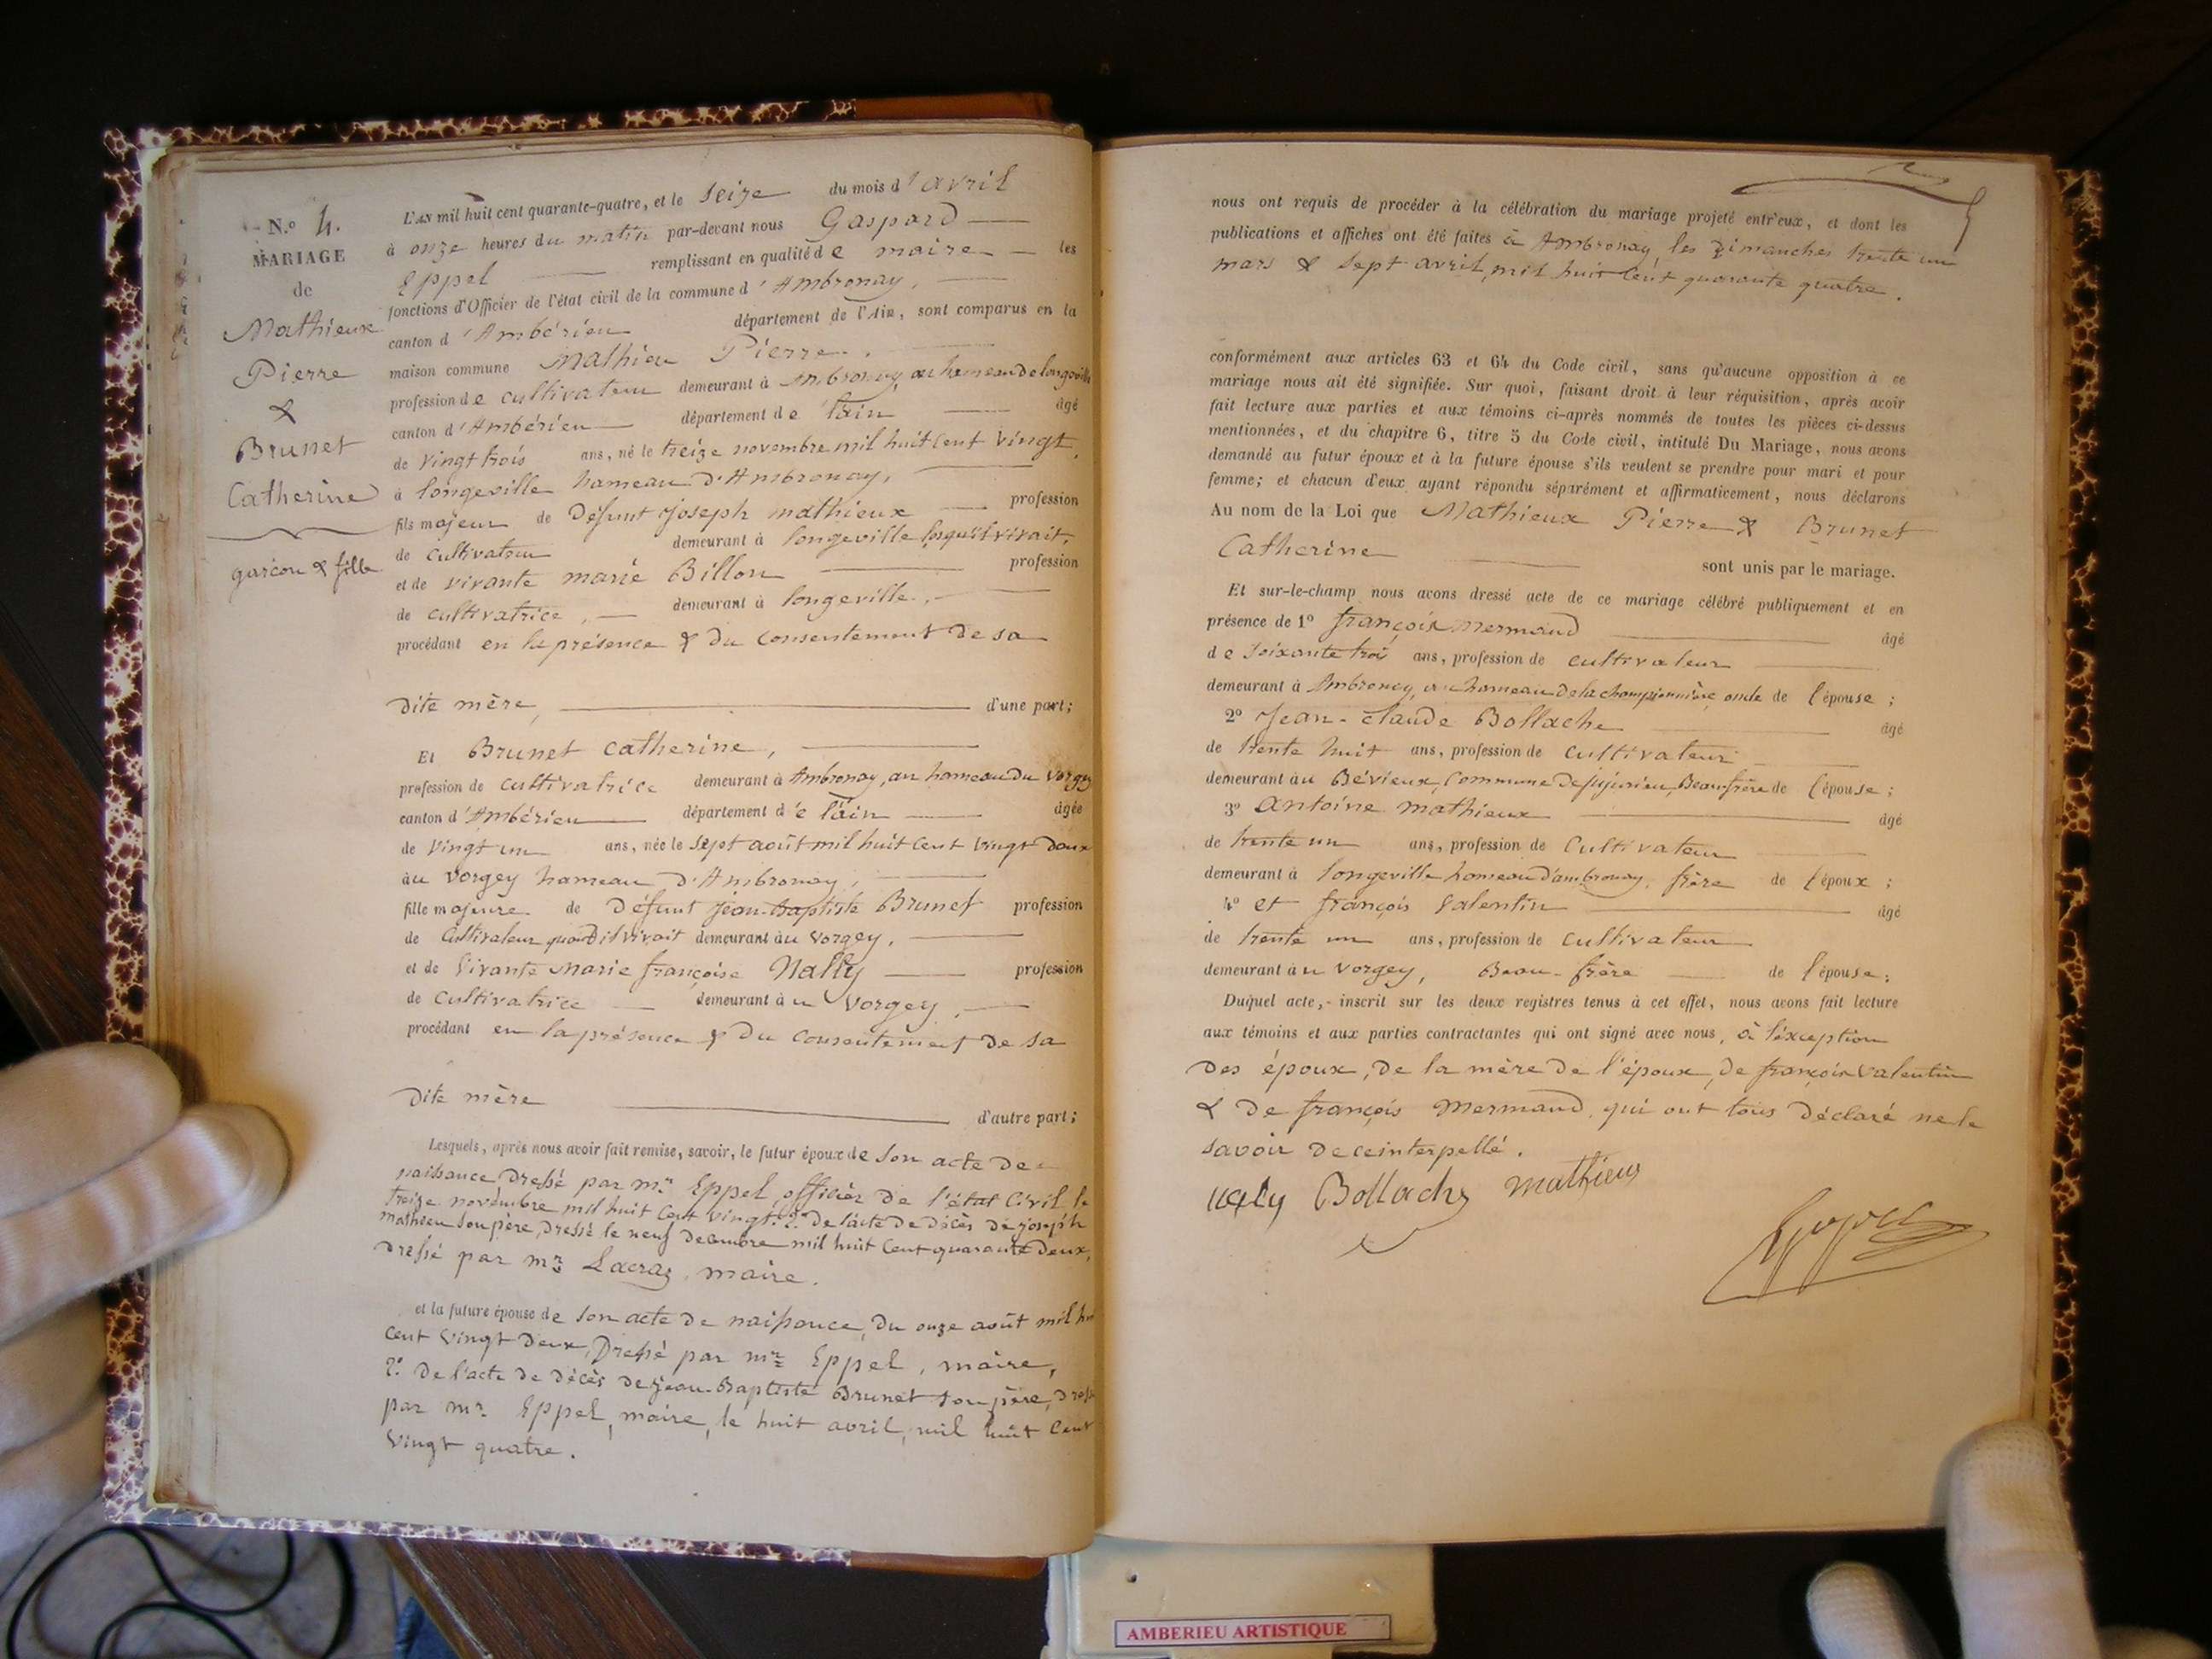 N.º 4.
MARIAGE
de
Mathieux
Pierre
&
Brunet
Catherine
garçon & fille
L'AN mil huit cent quarante-quatre, et le seize du mois d'avril
à onze heures du matin par-devant nous Gaspard
Eppel remplissant en qualité de maire les
fonctions d'Officier de l'état civil de la commune d'Ambronay,
canton d'Ambérieu département de l'Ain, sont comparus en la
maison commune Mathieu Pierre,
profession de cultivateur demeurant à Ambronay, au hameau de longeville
canton d'Ambérieu département de l'ain âgé
de vingt trois ans, né le treize novembre mil huit cent vingt,
à longeville hameau d'Ambronay,
fils majeur de défunt Joseph mathieux profession
de cultivateur demeurant à longeville lorsqu'il vivait,
et de vivante marie Billon profession
de cultivatrice, demeurant à longeville,
procédant en la présence & du consentement de sa
dite mère, d'une part;
Et Brunet catherine,
profession de cultivatrice demeurant à Ambronay, au hameau du Vorgey
canton d'Ambérieu département de l'ain âgée
de vingt un ans, née le sept août mil huit cent vingt deux
au vorgey hameau d'Ambronay,
fille majeure de défunt Jean-Baptiste Brunet profession
de cultivateur quand il vivait demeurant au vorgey,
et de vivante Marie françoise Nally profession
de cultivatrice demeurant au vorgey,
procédant en la présence & du consentement de sa
dite mère d'autre part;
Lesquels, après nous avoir fait remise, savoir, le futur époux de son acte de
naissance dressé par mr. Eppel, officier de l'état civil le
treize novembre mil huit cent vingt. 2º de l'acte de décès de joseph
mathieu son père, dressé le neuf décembre mil huit cent quarante deux,
dressé par mr. Lacraz, maire.
et la future épouse de son acte de naissance, du onze août mil hui
cent vingt deux, Dressé par mr. Eppel, maire,
2º. de l'acte de décès de jean-Baptiste Brunet son père, dressé
par mr. Eppel, maire, le huit avril, mil huit cent
vingt quatre.
nous ont requis de procéder à la célébration du mariage projeté entr'eux, et dont les
publications et affiches ont été faites à Ambronay les Dimanches trente un
mars & sept avril, mil huit cent quarante quatre.
conformément aux articles 63 et 64 du Code civil, sans qu'aucune opposition à ce
mariage nous ait été signifiée. Sur quoi, faisant droit à leur réquisition, après avoir
fait lecture aux parties et aux témoins ci-après nommés de toutes les pièces ci-dessus
mentionnées, et du chapitre 6, titre 5 du Code civil, intitulé Du Mariage, nous avons
demandé au futur époux et à la future épouse s'ils veulent se prendre pour mari et pour
femme; et chacun d'eux ayant répondu séparément et affirmativement, nous déclarons
Au nom de la Loi que Mathieux Pierre & Brunet
Catherine sont unis par le mariage.
Et sur-le-champ nous avons dressé acte de ce mariage célébré publiquement et en
présence de 1º françois mermand âgé
de soixante trois ans, profession de cultivateur
demeurant à Ambronay, au hameau de la championnière, oncle de l'épouse;
2º Jean-Claude Bollache âgé
de trente huit ans, profession de cultivateur
demeurant au Bévieux, Commune de jujurieu, Beau frère de l'épouse;
3º antoine mathieux âgé
de trente un ans, profession de Cultivateur
demeurant à longeville hameau d'ambronay, frère de l'époux;
4º et françois Valentin âgé
de trente un ans, profession de cultivateur
demeurant au vorgey, Beau-frère de l'épouse;
Duquel acte, inscrit sur les deux registres tenus à cet effet, nous avons fait lecture
aux témoins et aux parties contractantes qui ont signé avec nous, à l'exception
des époux, de la mère de l'époux, de françois Valentin
& de françois mermand, qui ont tous déclaré ne le
savoir de ce interpellé.
Bollache mathieux
Eppel
AMBERIEU ARTISTIQUE